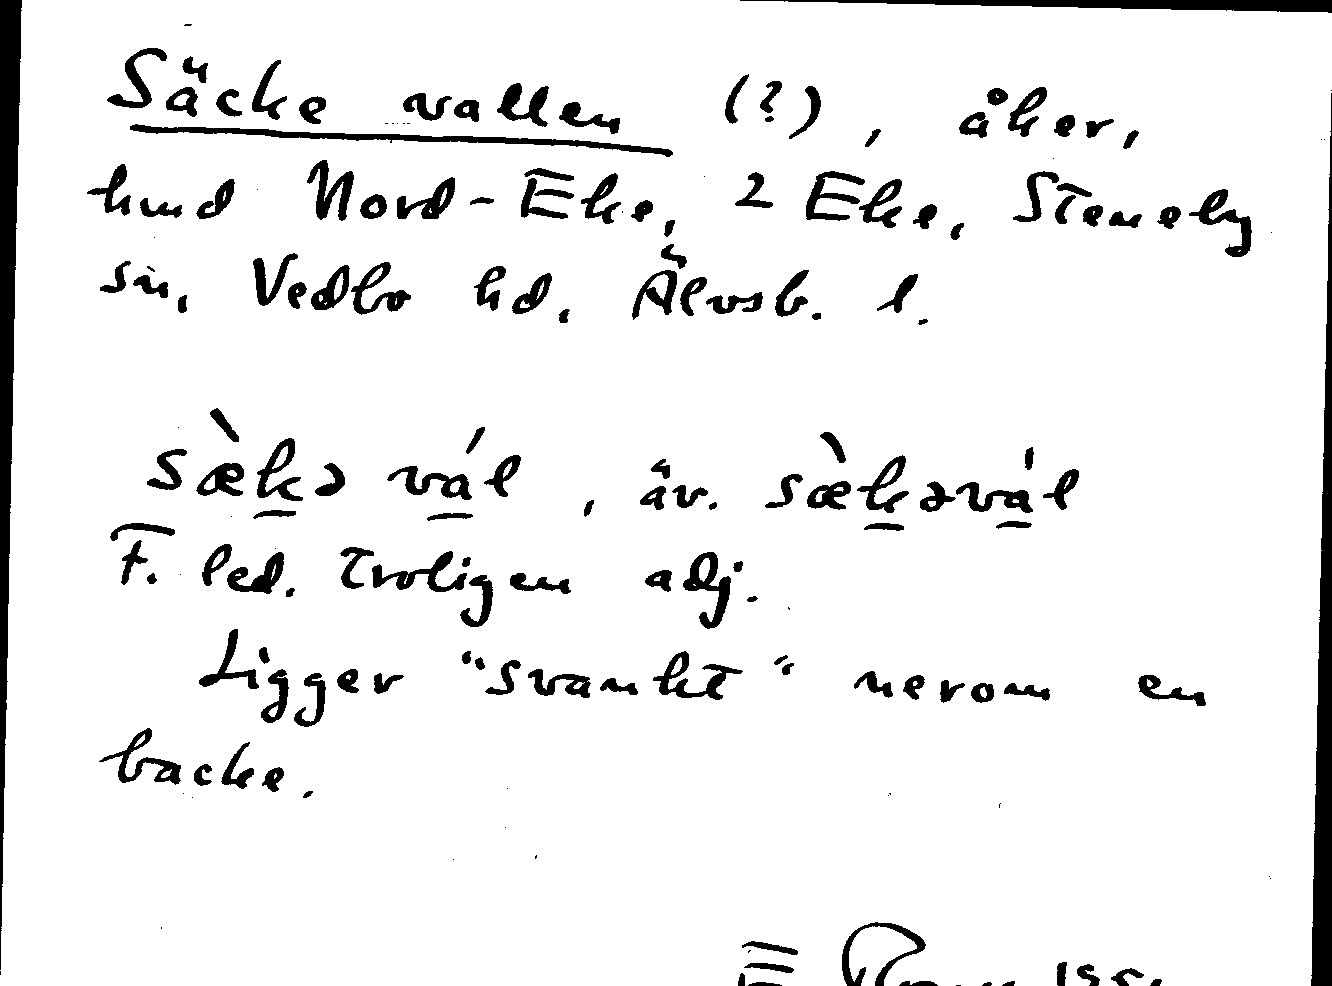 Säcke vallen (?), åker,
hmd Nord-Eke, 2 Eke, Steneby
sn, Vedbo hd, Älvsb. l.
sæ̀kə vál, äv. sæ̀kəvál
F. led. troligen adj.
Ligger "svankt" nerom en
backe.